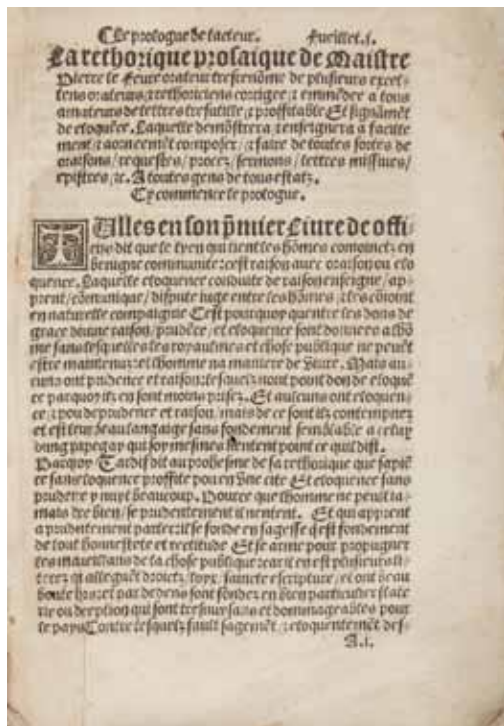 Le prologue de lacteur. Fueillet.i.
La rethorique prosaique de Maistre
Pierre le Feure orateur tresrenõme de plusieurs excel-
lens orateurs / rethoriciens corrigee / emmẽdee a tous
amateurs de lettres tresutille / proffitable Et signãmẽt
de eloquẽce. Laquelle demõstrera / enseignera a facille
ment / aornẽemẽt composer / faire de toutes sortes de
oraisons / requestes / procez / sermons / lettres missiues /
epistres / ⁊c. A toutes gens de tous estatz.
Cy commence le prologue.
TUlles en son p̃mier Liure de offi-
ces dit que le lyen qui tient les hõmes conioinctz en
benigne communite: cest raison auec oraison ou elo
quence. Laquelle eloquence conduite de raison enseigne / ap-
prent / cõmunique / dispute iuge entre les hõmes / les conioint
en naturelle compaignie Cest pourquoy quentre les dons de
grace diuine raison / prudẽce / et eloquence sont donnees a lhõ
me sans lesquelles les royaulmes et chose publique ne peuẽt
estre maintenuz: et lhomme na maniere de viure. Mais au-
cuns ont prudence et raison: lesquelz nont point don de eloquẽ
ce parquoy ilz en sont moins prisez. Et aulcuns ont eloquen-
ce / pou de prudence et raison / mais de ce sont ilz contempnez
et est leur beau langaige sans fondement semblable a celuy
dung papegay qui soy mesmes nentent point ce quil dist.
Parquoy Tardif dit au prohesme de sa rethorique que sapiẽ
ce sans eloquence proffite pou en vne cite Et eloquence sans
prudence y nuyt beaucoup. Pource que lhomme ne peult ia-
mais dire bien / se prudentement il nentent. Et qui apprent
a prudentement parler: il se fonde en sagesse q̃ est fondement
de tout honnestete et rectitude Et se arme pour propugner
les mauuais de la chose publique: car il en est plusieurs li-
trez q̃ alleguẽt droictz / loyx / saincte escripture / et ont beau
boute hors: et par dedens sont fondez en bien particulier flate
rie ou deception qui sont tresnuysans et dommageables pour
le pays Contre lesquelz fault sagemẽt / eloquentemẽt des-
A.i.